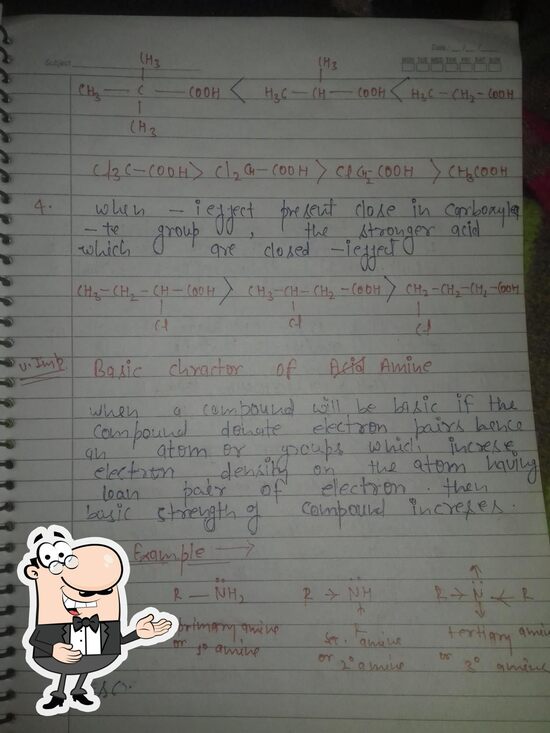 Subject
Date
MON TUE WED THU FRI SAT SUN
CH3
CH3 — C — COOH < H3C — CH — COOH < H3C — CH2 — COOH
CH3
Cl3C — COOH > Cl2CH — COOH > ClCH2 — COOH > CH3COOH
4. When — ieffect present close in Carboxyla
— te group, the stronger acid
which are closed — ieffect
CH3 — CH2 — CH — COOH > CH3 — CH — CH2 — COOH > CH2 — CH2 — CH2 — COOH
Cl Cl Cl
V. Imp Basic chractor of Acid Amine
when a compound will be basic if the
compound donate electron pairs hence
an atom or groups which increse
electron density on the atom having
loan pair of electron. then
basic strength of compound increses.
Example →
R — NH2 R → NH R → N ← R
primary amine sec. amine tertiary amine
or 1° amine or 2° amine or 3° amine